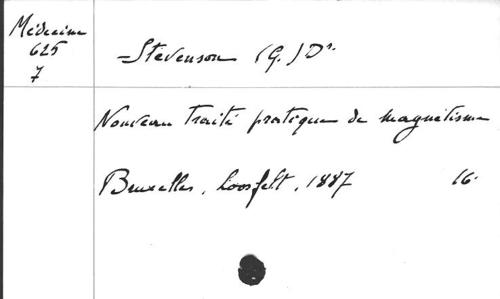 Médecine
625
7
Stevenson (G.) Dr.
Nouveau Traité pratique de magnétisme
Bruxelles, Loosfelt, 1887 16.